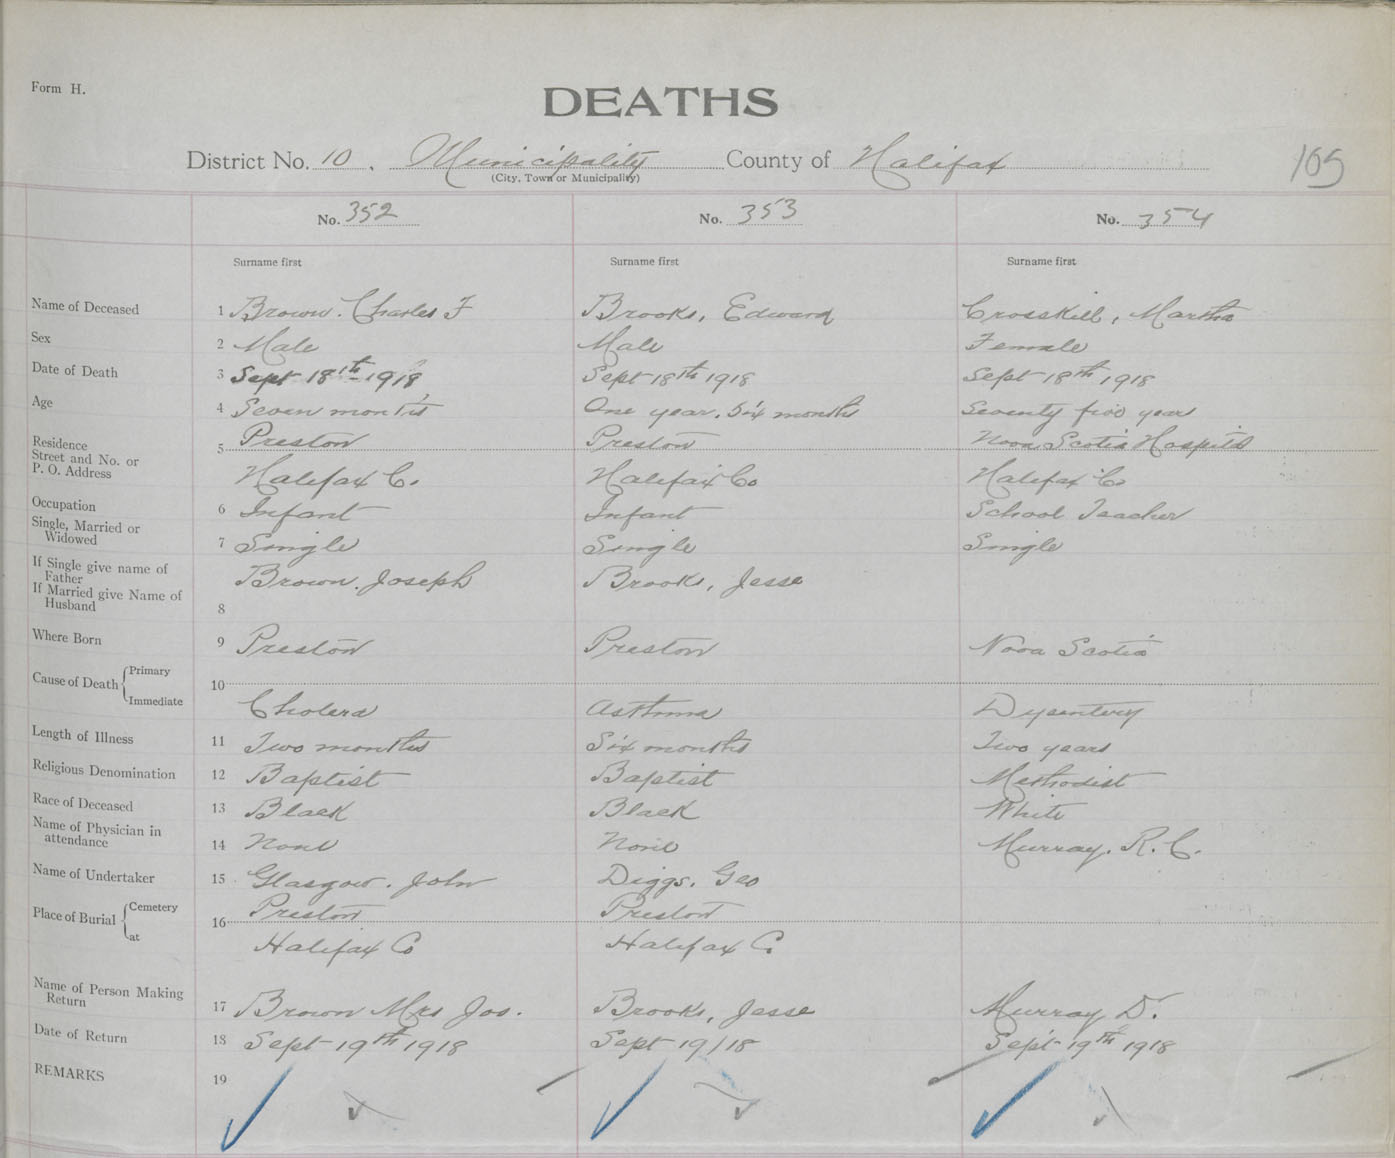 Form H.
DEATHS
District No. 10, Municipality County of Halifax
(City, Town or Municipality)
105
No. 352 No. 353 No. 354
Surname first Surname first Surname first
Name of Deceased 1 Brown. Charles F Brooks, Edward Crosskill, Martha
Sex 2 Male Male Female
Date of Death 3 Sept 18th 1918 Sept 18th 1918 Sept 18th 1918
Age 4 Seven months One year, six months Seventy five years
Residence
Street and No. or
P. O. Address
5 Preston Preston Nova Scotia Hospital
Halifax C. Halifax Co Halifax Co
Occupation 6 Infant Infant School Teacher
Single, Married or
Widowed
7 Single Single Single
If Single give name of
Father
Brown. Joseph Brooks, Jesse
If Married give Name of
Husband
8
Where Born 9 Preston Preston Nova Scotia
Cause of Death Primary
10
Immediate
Cholera Asthma Dysentery
Length of Illness 11 Two months Six months Two years
Religious Denomination 12 Baptist Baptist Methodist
Race of Deceased 13 Black Black White
Name of Physician in
attendance
14 None None Murray. R. C.
Name of Undertaker 15 Glasgow. John Diggs. Geo
Place of Burial Cemetery
at
16 Preston Preston
Halifax Co Halifax C.
Name of Person Making
Return
17 Brown Mrs Jos. Brooks, Jesse Murray D.
Date of Return 18 Sept 19th 1918 Sept 19/18 Sept 19th 1918
REMARKS 19